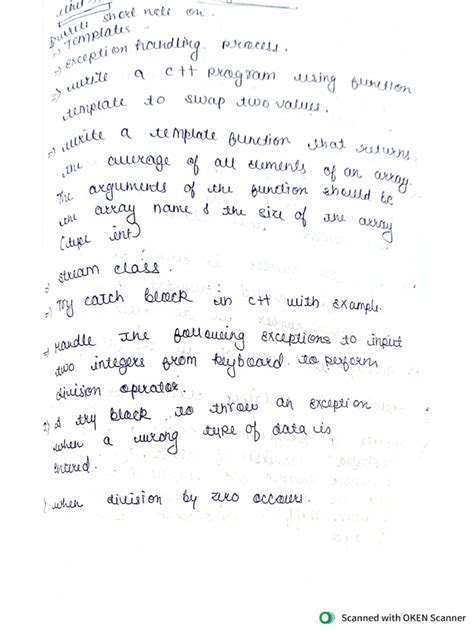 Unit-
Write short note on.
=> Templates
=> Exception handling process.
=> write a C++ program using function
template to swap two values.
=> write a template function that returns
the average of all elements of an array.
The arguments of the function should be
the array name & the size of the array
(type int)
=> stream class.
=> Try catch block in C++ with example.
=> Handle the following exceptions to input
two integers from keyboard to perform
division operator.
A try block to throw an exception
when a wrong type of data is
entered.
when division by zero occurs.
Scanned with OKEN Scanner